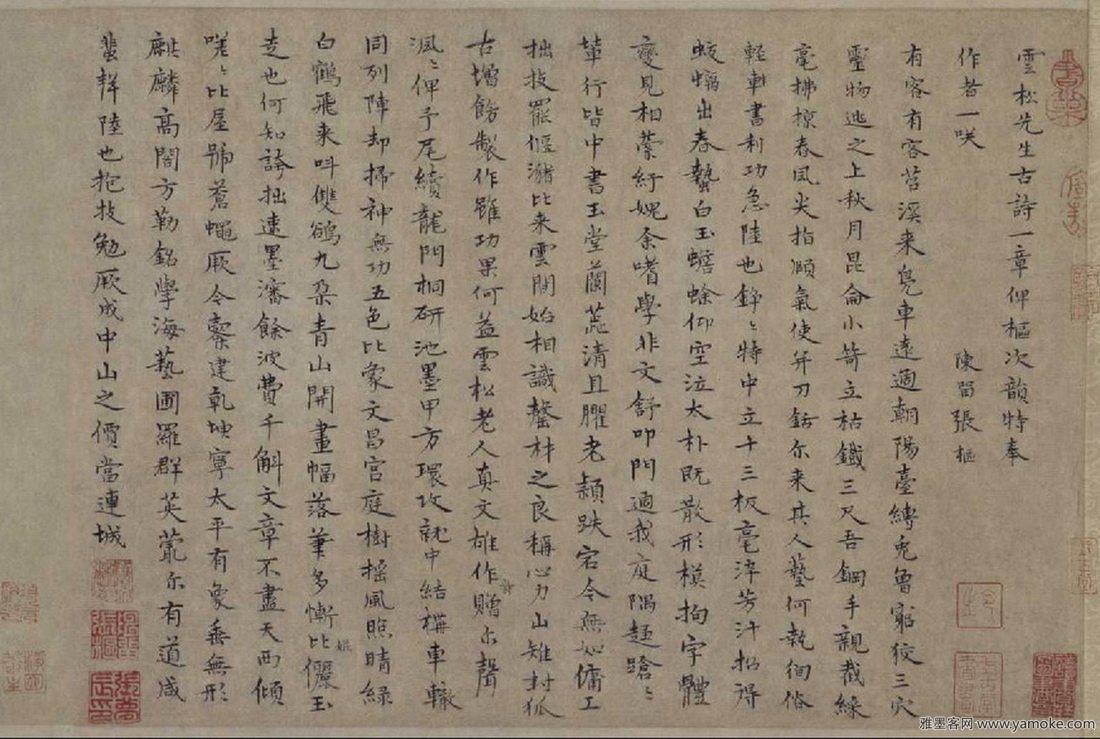 雲松先生古詩一章俾樞次韻特奉
作者一咲 陳留張樞
有客有客苕溪來鳧車遠適朝陽臺縛兔魯窮狡三穴
靈物逃之上秋月昆侖小笴立枯鐵三尺吾鋼手親截綠
毫拂掠春風尖指瀕氣使并刀銛尓来其人藝何執徇俗
輕軟書利功急陸也錚〻特中立十三板毫淬芳汁招得
蛟蝠出春蟄白玉蟾蜍仰空泣太朴既散形模拘字體
變見相縈紆媿余嗜學非文舒叩門適我庭隅趦蹌〻
輩行皆中書玉堂蘭蕋清且臞老穎跌宕今無如傭工
拙技罷偃瀦比来雲間始相識罄材之良稱心力山雉封狐
古增飾製作雖功果何益雲松老人真文雄作贈尓聲
渢〻俾予尾續龍門桐研池墨甲方環攻就中結構車轍
同列陣却掃神無功五色比象文昌宮庭樹搖風照晴綠
白鶴飛来叫雙鵒九朵青山開畫幅落筆多慚比儷玉
走也何知誇拙速墨瀋餘波費千斛文章不盡天西傾
嘆〻比屋號蒼蠅厥今寮建乹坤寧太平有象垂無形
麒麟高閣方勒銘學海藝圃羅群英藂尓有道咸
蜚觧陸也抱技勉厥成中山之價當連城
雅墨客网 www.yamoke.com